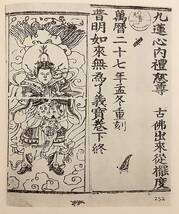 九蓮心內禮慈尊　古佛出來從擺度
萬曆二十七年孟冬重刻
普明如來無為了義寶卷下終
252